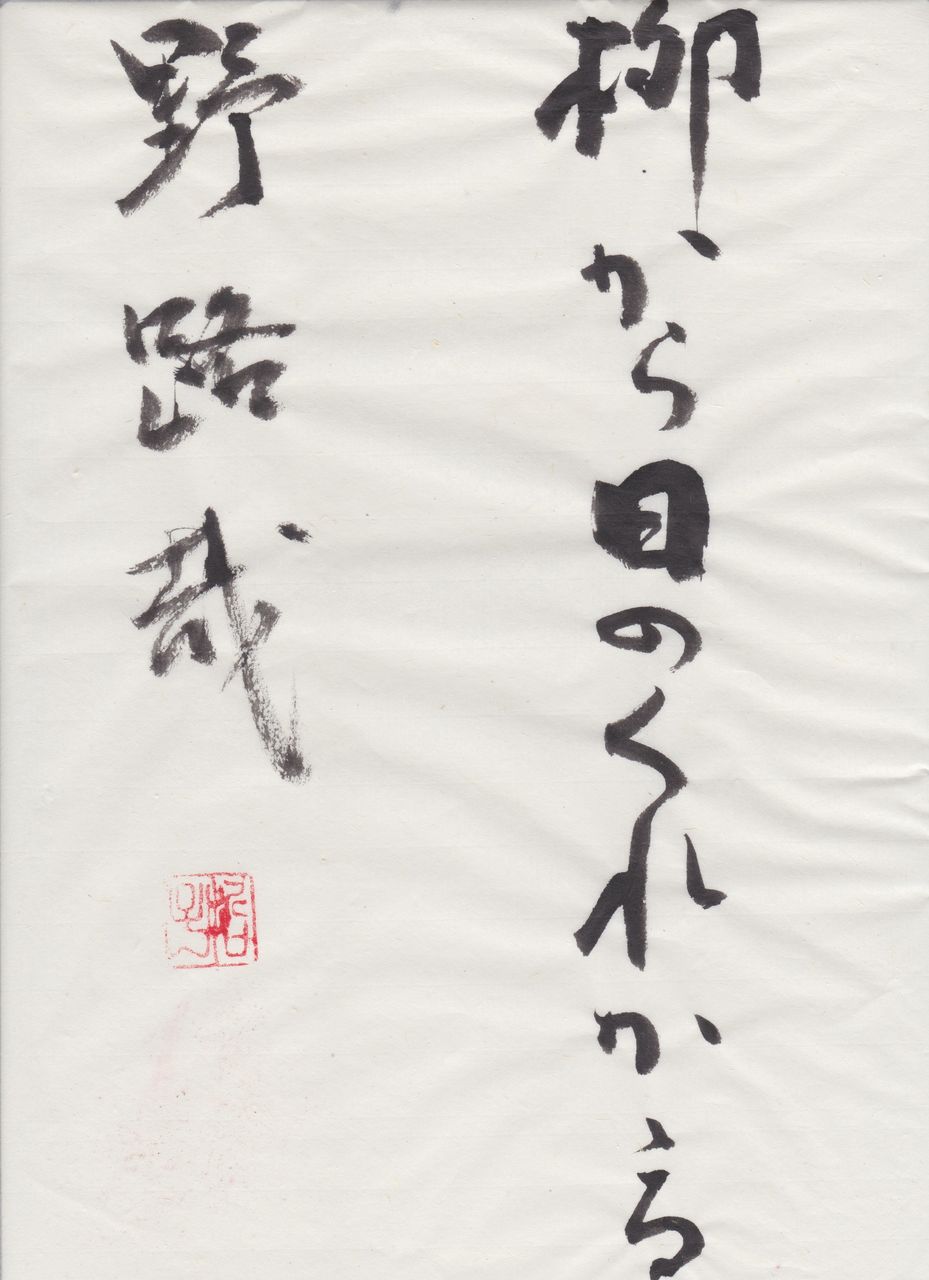 柳から日のくれかゝる
野路哉